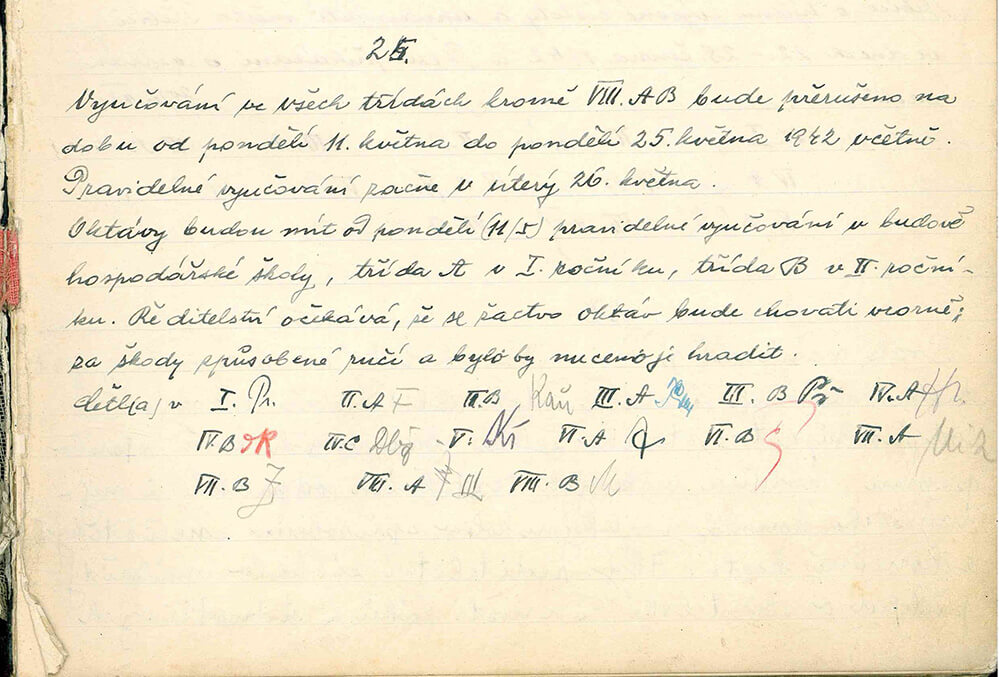 Vyučování ve všech třídách kromě VIII. A B bude přerušeno na
dobu od pondělí 11. května do pondělí 25. května 1942 včetně.
Pravidelné vyučování začne v úterý 26. května.
Oktávy budou mít od pondělí (11/5) pravidelné vyučování v budově
hospodářské školy, třída A v I. ročníku, třída B v II. roční-
ku. Ředitelství očekává, že se žactvo oktáv bude chovati vzorně;
za škody způsobené ručí a bylo by nuceno je hradit.
četl(a) v I. Pr. II. A F II. B Kau III. A III. B Př IV. A
IV. B II. C V. Kr VI. A VI. B VII. A
VII. B J VIII. A VIII. B M